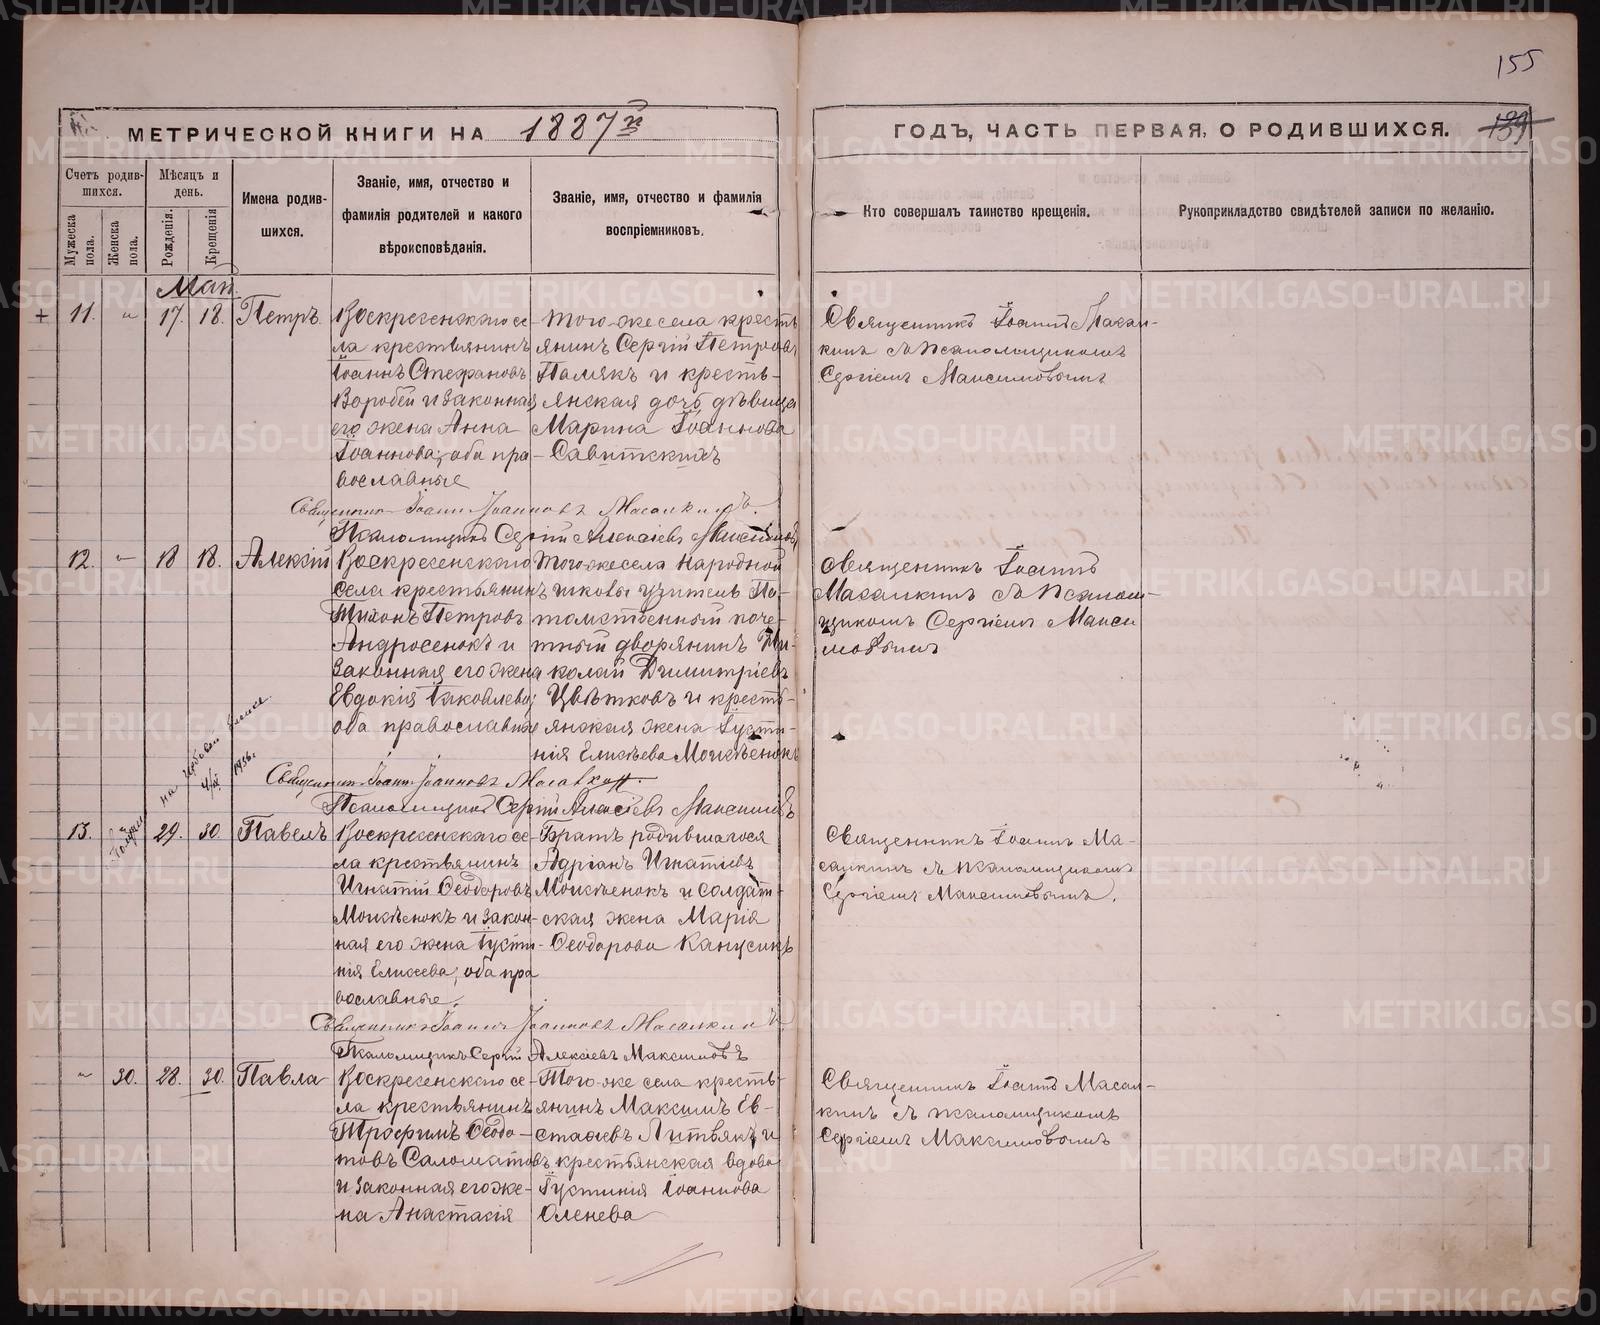 155
МЕТРИЧЕСКОЙ КНИГИ НА 1887й
ГОДЪ, ЧАСТЬ ПЕРВАЯ, О РОДИВШИХСЯ.
139
Счетъ родив-
шихся.
Мужеска пола.
Женска пола.
Мѣсяцъ и день.
Рожденія.
Крещенія
Имена родив-
шихся.
Званіе, имя, отчество и
фамилія родителей и какого
вѣроисповѣданія.
Званіе, имя, отчество и фамилія
воспріемниковъ.
Кто совершалъ таинство крещенія.
Рукоприкладство свидѣтелей записи по желанію.
Май
+ 11. " 17. 18. Петръ
Воскресенскаго се-
ла крестьянинъ
Іоаннъ Стефановъ
Воробей и законная
его жена Анна
Іоаннова, оба пра-
вославные
Того-же села кресть
янинъ Сергій Петровъ
Полякъ и кресть-
янская дочь, дѣвица
Марина Іоаннова
Савитскихъ
Священникъ Іоаннъ Масал-
кинъ съ псаломщикомъ
Сергіемъ Максимовымъ
Священникъ Іоаннъ Іоанновъ Масалкинъ.
Псаломщикъ Сергій Алексіевъ Максимовъ
12. " 18 18. Алексій
Воскресенскаго
села крестьянинъ
Тихонъ Петровъ
Андросенокъ и
законная его жена
Евдокія Іаковлева;
оба православные
Того-же села народной
школы учитель По-
томственный поче-
тный дворянинъ Ни-
колай Димитріевъ
Цвѣтковъ и кресть-
янская жена Іусти-
нія Елисѣева Моисѣенокъ
Священникъ Іоаннъ
Масалкинъ съ Псалом-
щикомъ Сергіемъ Макси
мовымъ
Священникъ Іоаннъ Іоанновъ Масалкинъ.
Псаломщикъ Сергій Алексіевъ Максимовъ
1936г.
13. 29. 30. Павелъ
Воскресенскаго се-
ла крестьянинъ
Игнатій Ѳеодоровъ
Моисѣенокъ и закон-
ная его жена Іусти-
нія Елисеева, оба пра
вославные.
Братъ родившагося
Адріанъ Игнатіевъ
Моисѣенокъ и солдат-
ская жена Марія
Ѳеодорова Канусикъ
Священникъ Іоаннъ Ма-
салкинъ съ псаломщикомъ
Сергіемъ Максимовымъ.
Священникъ Іоаннъ Іоанновъ Масалкинъ
Псаломщикъ Сергій Алексіевъ Максимовъ
" 30. 28. 30. Павла
Воскресенскаго се-
ла крестьянинъ
Трофимъ Ѳедо-
товъ Саломатовъ
и законная его же-
на Анастасія
Того-же села кресть-
янинъ Максимъ Ев-
стаѳіевъ Литвякъ и
крестьянская вдова
Іустинія Іоаннова
Оленева
Священникъ Іоаннъ Масал-
кинъ съ псаломщикомъ
Сергіемъ Максимовымъ